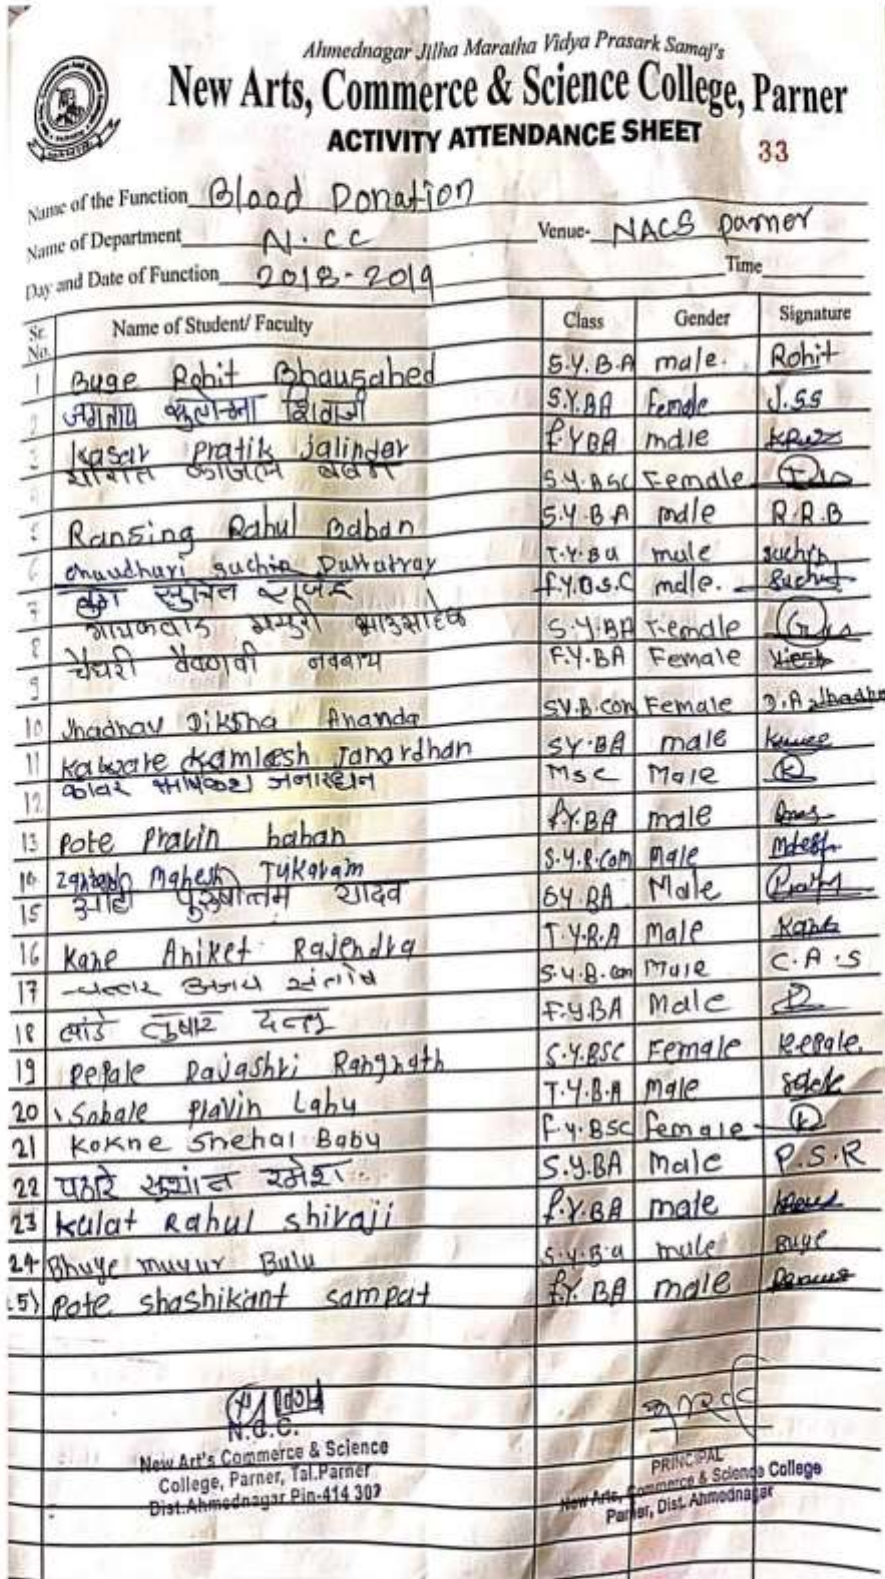 Ahmednagar Jilha Maratha Vidya Prasark Samaj's
New Arts, Commerce & Science College, Parner
ACTIVITY ATTENDANCE SHEET
33
Name of the Function Blood Donation
Name of Department N.CC Venue- NACS parner
Day and Date of Function 2018-2019 Time
Sr. No. Name of Student/ Faculty Class Gender Signature
1 Buge Rohit Bhausahed S.Y.B.A male. Rohit
2 जगताप शिवाजी S.Y.BA Female J.SS
3 Kasar Pratik jalinder F.YBA male
4 S.Y.BSC Female
5 Ransing Rahul Baban S.Y.B.A male R.R.B
6 chaudhari suchir Dattatray T.Y.Ba male
7 F.Y.B.S.C male.
8 गायकवाड मयुरी भाऊसाहेब S.Y.BA Female
9 चौधरी वैष्णवी नवनाथ F.Y.BA Female
10 Jhadhav Diksha Ananda SY.B.com Female D.A.Jhadhav
11 Kaware Kamlesh Janardhan SY.BA male
12 जनारधन Msc Male
13 Pote Pravin baban F.Y.BA male
14 Mahesh Tukaram S.Y.B.Com Male
15 पुरुषोत्तम यादव SY.BA Male
16 Kane Aniket Rajendra T.Y.B.A Male Kane
17 अजय संतोष S.Y.B.com Male C.A.S
18 तुषार दत्तू F.Y.BA Male
19 Repale Rajashri Rangnath S.Y.BSC Female Repale.
20 Sobale Pravin Lahu T.Y.B.A Male
21 Kokne Snehal Babu F.Y.BSC female
22 पठारे सुशांत रमेश S.Y.BA Male P.S.R
23 Kulat Rahul shivaji F.Y.BA male
24 Bhuge muyur Balu S.Y.B.a male Buge
25) Pote shashikant sampat F.Y.BA male
N.C.C.
New Art's Commerce & Science
College, Parner, Tal.Parner
Dist.Ahmednagar Pin-414 302
PRINCIPAL
New Arts, Commerce & Science College
Parner, Dist. Ahmednagar